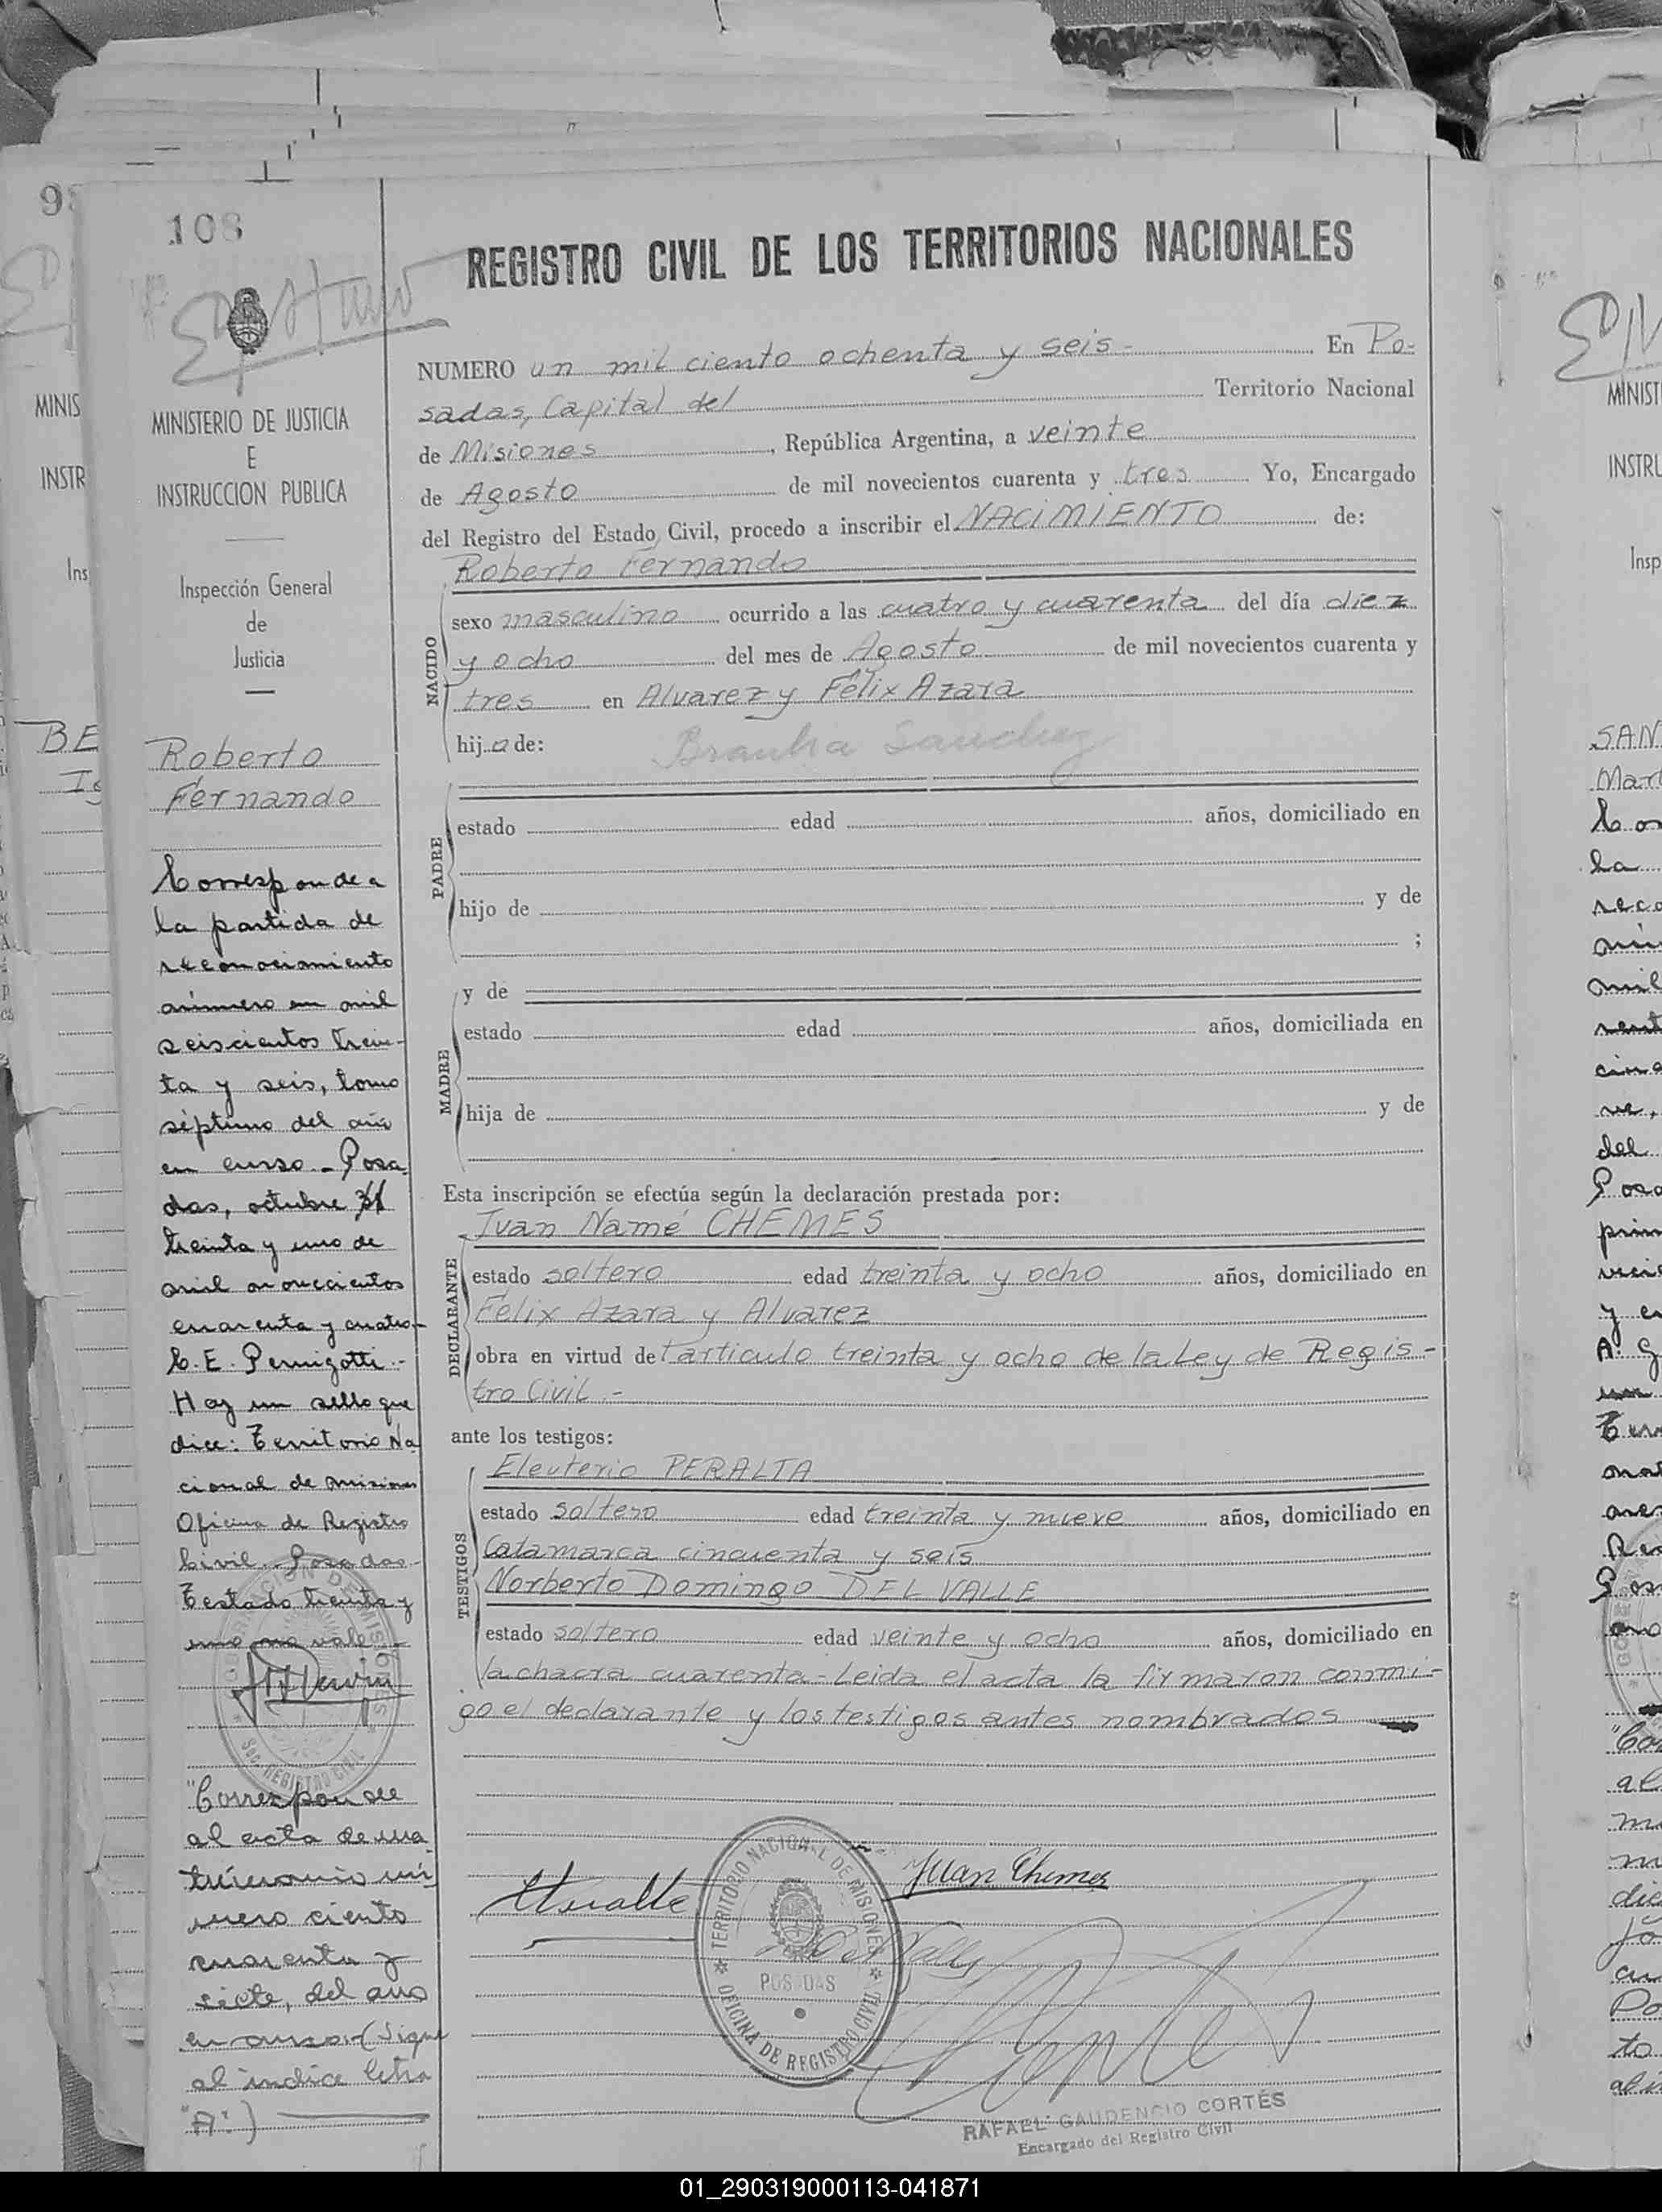 108
REGISTRO CIVIL DE LOS TERRITORIOS NACIONALES
MINISTERIO DE JUSTICIA
E
INSTRUCCION PUBLICA
Inspección General
de
Justicia
Roberto
Fernando
Corresponde a
la partida de
reconocimiento
número un mil
seiscientos trein-
ta y seis, tomo
séptimo del año
en curso.- Posa-
das, octubre 31
treinta y uno de
mil novecientos
cuarenta y cuatro-
C. E. Pernigotti.-
Hay un sello que
dice: Territorio Na
cional de Misiones
Oficina de Registro
Civil. Posadas-
Testado treinta y
uno no vale
"Corresponde
al acta de ma
trimonio nú
mero ciento
cuarenta y
siete, del año
en curso.- (Sigue
al indice letra
"A".)
NUMERO un mil ciento ochenta y seis- En Po-
sadas, Capital del Territorio Nacional
de Misiones, República Argentina, a veinte
de Agosto de mil novecientos cuarenta y tres Yo, Encargado
del Registro del Estado Civil, procedo a inscribir el NACIMIENTO de:
Roberto Fernando
NACIDO
sexo masculino ocurrido a las cuatro y cuarenta del día diez
y ocho del mes de Agosto de mil novecientos cuarenta y
tres en Alvarez y Félix Azara
hijo de: Sanchez
PADRE
estado edad años, domiciliado en
hijo de y de
;
y de
MADRE
estado edad años, domiciliada en
hija de y de
Esta inscripción se efectúa según la declaración prestada por:
Juan Namé CHEMES
DECLARANTE
estado soltero edad treinta y ocho años, domiciliado en
Félix Azara y Alvarez
obra en virtud del articulo treinta y ocho de la Ley de Regis-
tro Civil.-
ante los testigos:
Eleuterio PERALTA
TESTIGOS
estado soltero edad treinta y nueve años, domiciliado en
Catamarca cincuenta y seis
Norberto Domingo DEL VALLE
estado soltero edad veinte y ocho años, domiciliado en
la chacra cuarenta- Leida el acta la firmaron conmi-
go el declarante y los testigos antes nombrados
Juan Chemes
Del Valle
TERRITORIO NACIONAL DE MISIONES
POSADAS
OFICINA DE REGISTRO CIVIL
RAFAEL GAUDENCIO CORTÉS
Encargado del Registro Civil
01_290319000113-041871